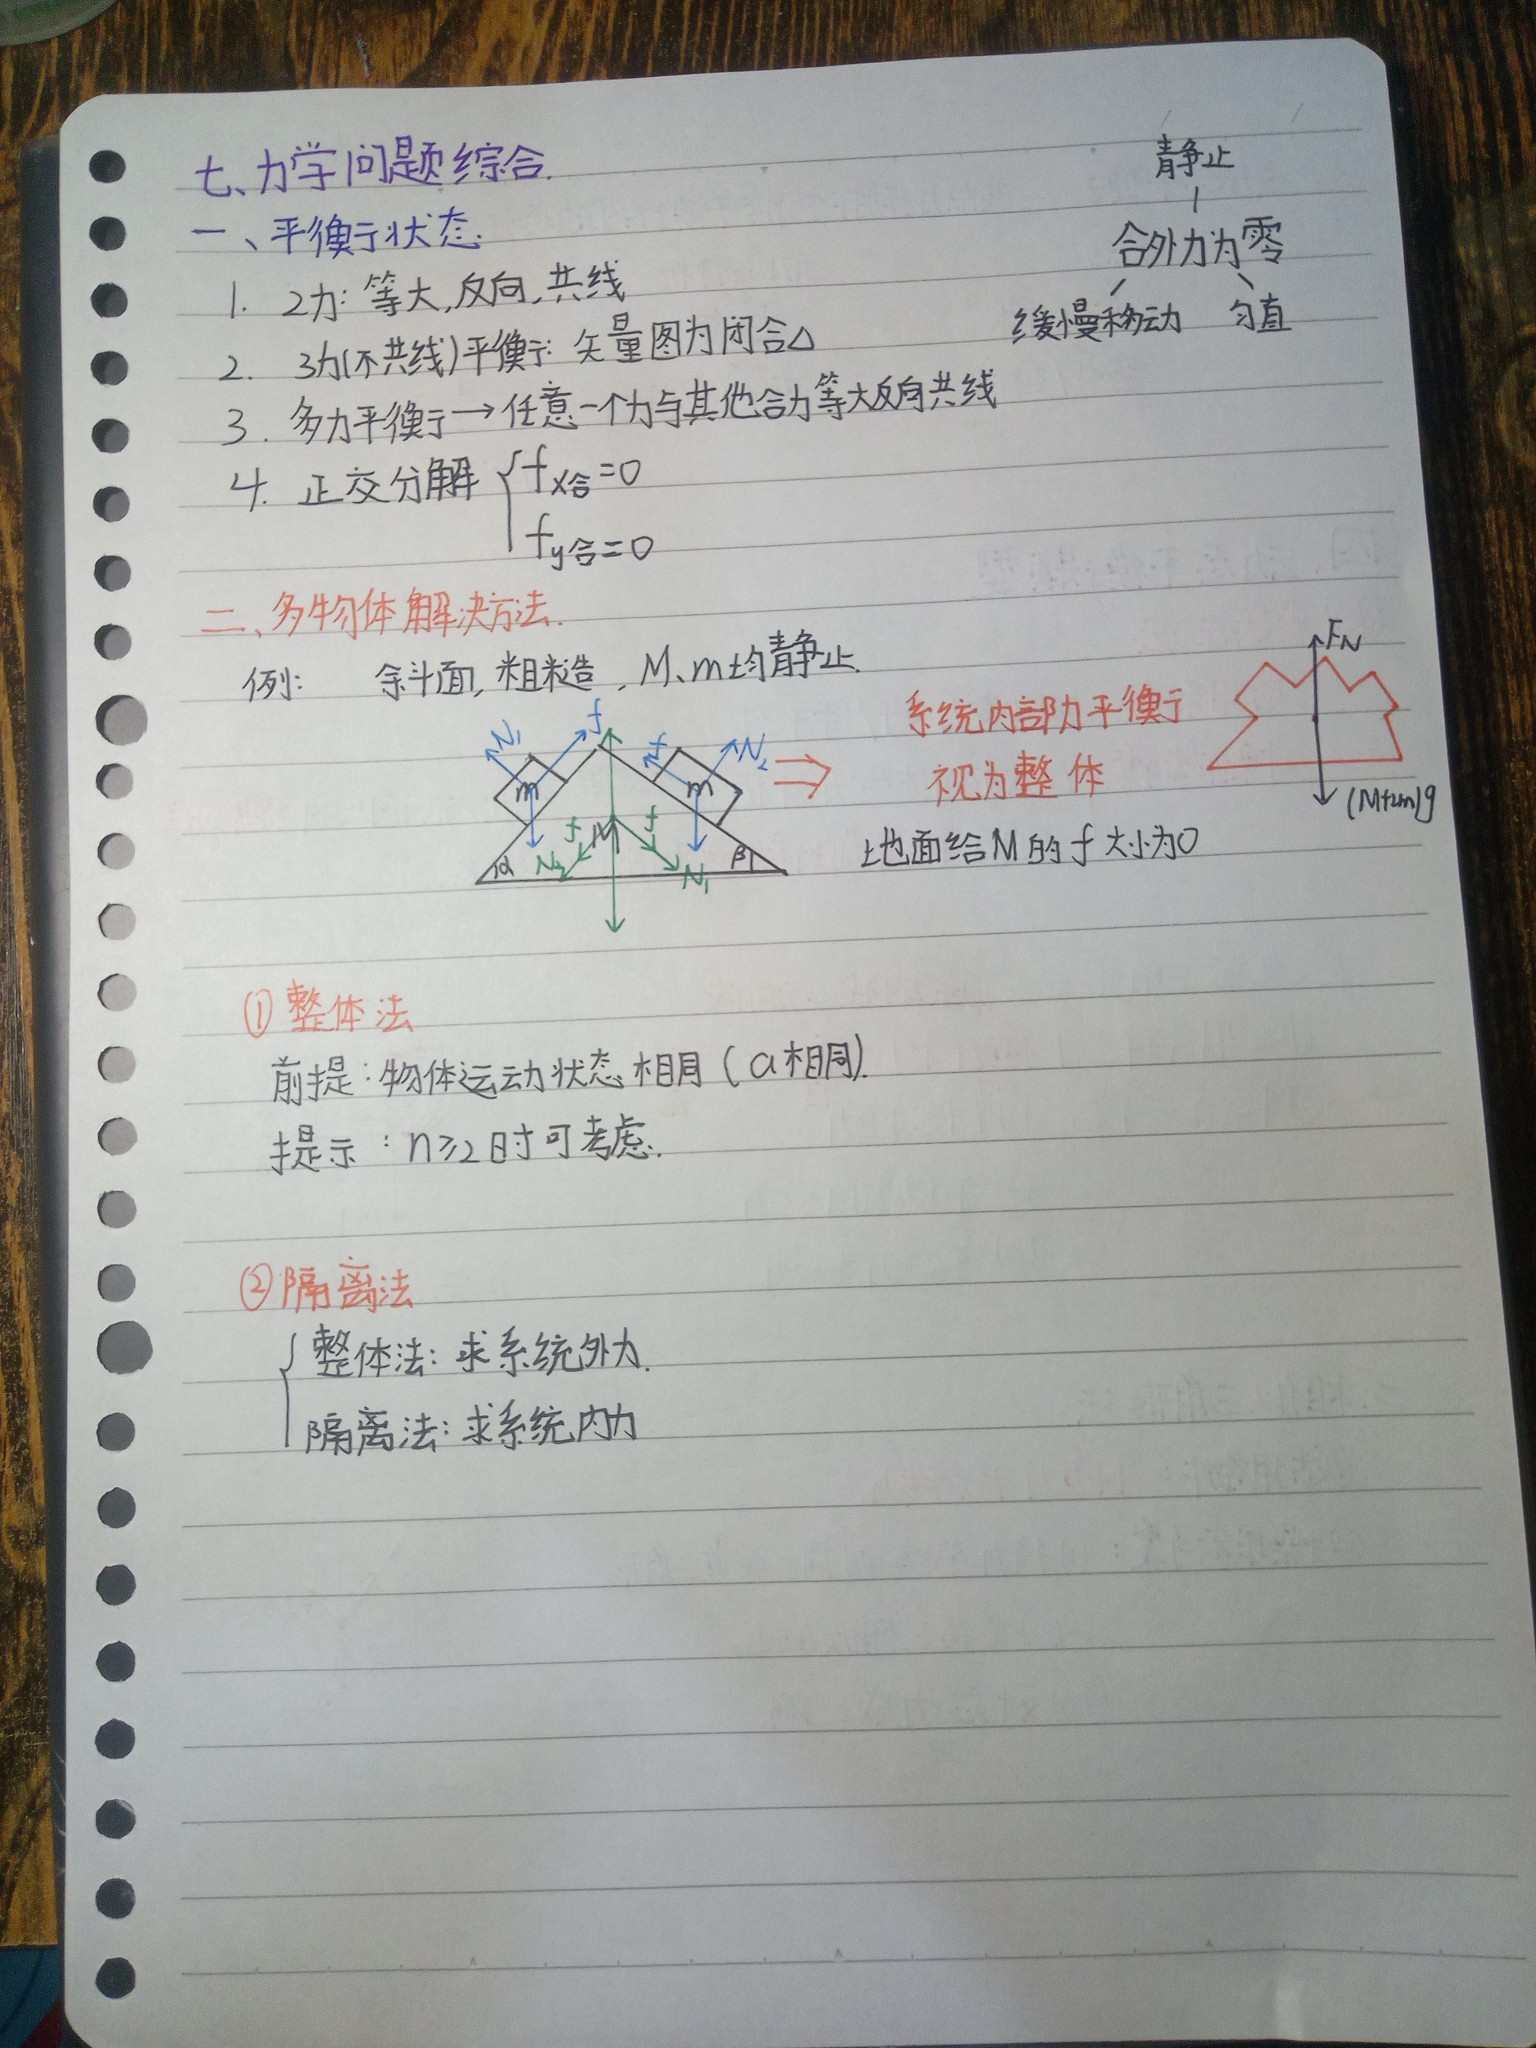 七、力学问题综合.
静止
一、平衡状态.
合外力为零
1. 2力: 等大,反向,共线
缓慢移动 匀直
2. 3力(不共线)平衡: 矢量图为闭合△
3. 多力平衡→任意一个力与其他合力等大反向共线
4. 正交分解 { fx合=0
fy合=0
二、多物体解决方法.
例: 斜面,粗糙,M、m均静止.
N₁ f f N₂
m m
f M f
α N₂ N₁ β
⇒ 系统内部力平衡
视为整体
FN
(M+2m)g
地面给M的f大小为0
① 整体法
前提:物体运动状态相同(a相同).
提示:n≥2时可考虑.
② 隔离法
{ 整体法: 求系统外力.
隔离法: 求系统内力